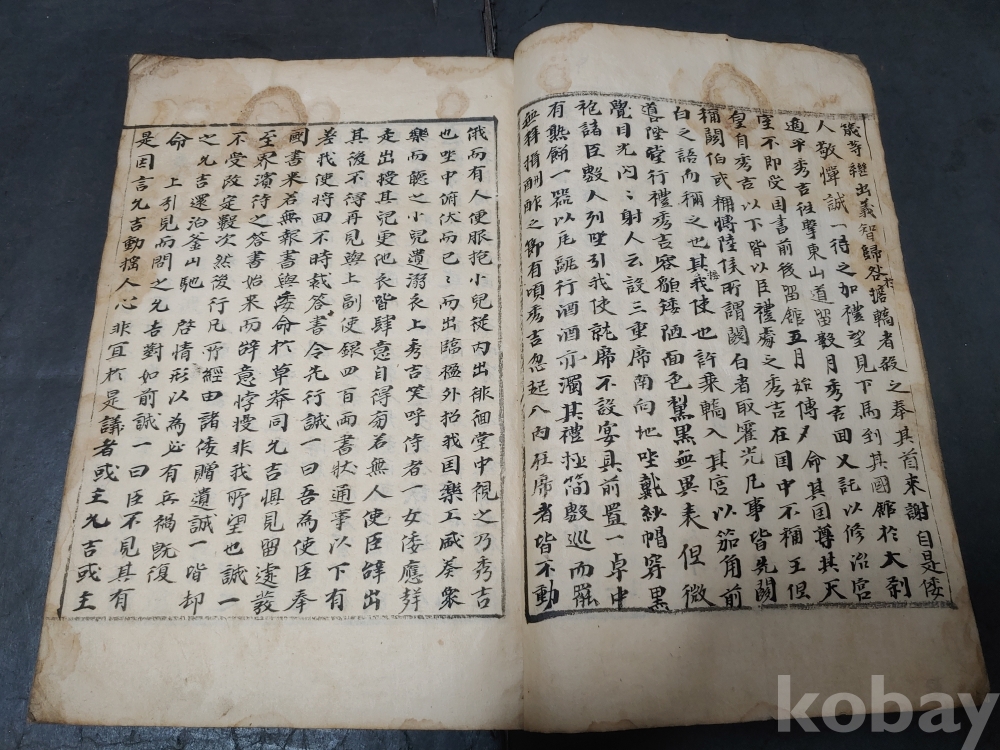 誠等継出義智歸咎於擔轎者殺之奉其首来謝自是倭
人敬憚誠一待之加禮望見下馬到其國館於大刹
適平秀吉徃擊東山道留數月秀吉回又託以修治宮
室不即受囯書前後留館五月始傳命其囯尊其天
皇自秀吉以下皆以臣禮處之秀吉在囯中不稱王但
稱關伯或稱博陸侯所謂關白者取霍光凡事皆先關
白之語而稱之也其接我使也許乗轎入其宫以笳角前
導陞堂行禮秀吉容貌矮陋面色黧黒無異表但微
覺目光閃閃射人云設三重席南向地坐戴紗帽穿黒
袍諸臣數人列坐引我使就席不設宴具前置一卓中
有熟餅一器以瓦甌行酒酒亦濁其禮極簡數巡而罷
無拜揖酬酢之節有頃秀吉忽起入内在席者皆不動
俄而有人便服抱小兒從内出徘徊堂中視之乃秀吉
也坐中俯伏而已已而出臨楹外招我囯樂工盛奏衆
樂而聽之小兒遺溺衣上秀吉笑呼侍者一女倭應聲
走出授其兒更他衣皆肆意自得旁若無人使臣辞出
其後不得再見與上副使銀四百兩書状通事以下有
差我使將回不時裁答書令先行誠一曰吾為使臣奉
國書来若無報書與委命於草莽同允吉惧見留遽發
至界濱待之答書始来而辞意悖慢非我所望也誠一
不受改定數次然後行凡所經由諸倭贈遺誠一皆却
之允吉還泊釜山馳啓情形以為必有兵禍既復
命上引見而問之允吉對如前誠一曰臣不見其有
是因言允吉動揺人心非宜於是議者或主允吉或主
kobay